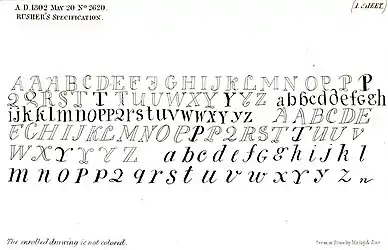 A.D. 1802 MAY 20 Nº 2620.
RUSHER'S SPECIFICATION.
(1 SHEET)
A A A B C D E F J G H I J K L M N O P P P
Q Q R S T T T U U W X Y Y Y Z Z a b b c d d e f G g h
i j k k l m n o P P 2 r s t u v w w x y y z A A B C D E
E G H I J K L M N O P P P Q R S T T U U V
W X Y Y Y Z Z a b c d e f G g h i j k l
m n o p p 2 q r s t u v w x y y z n
The enrolled drawing is not colored.